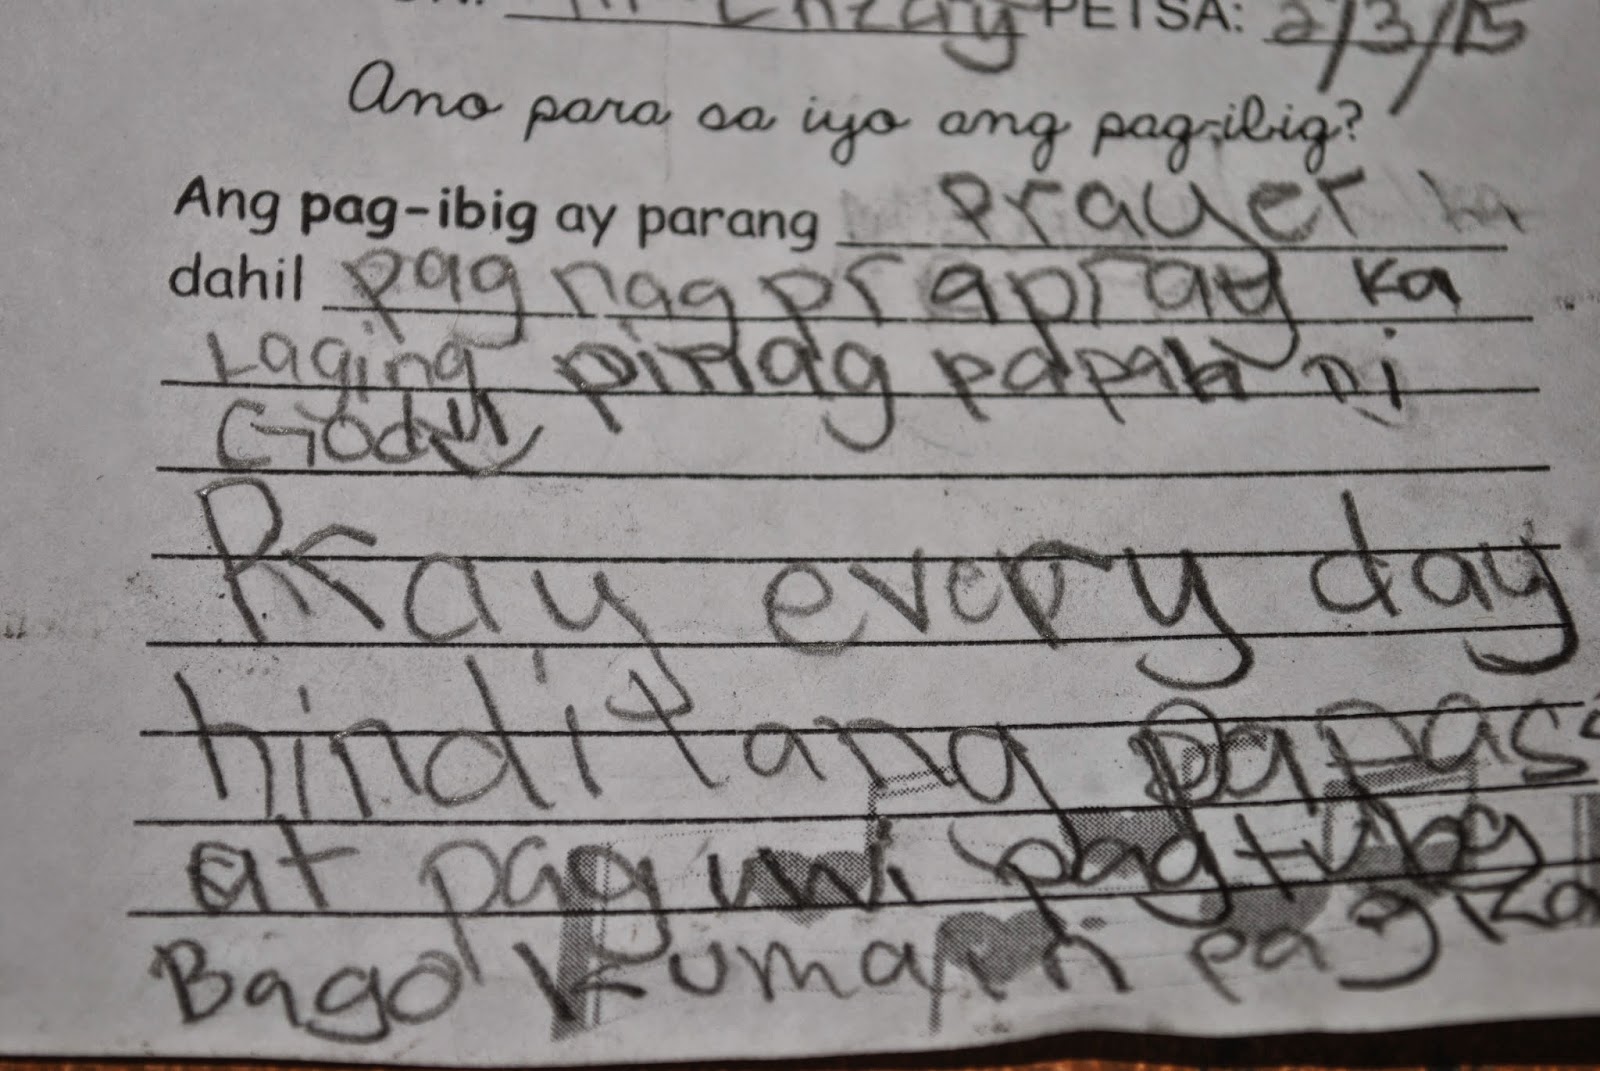 PETSA: 2/3/15
Ano para sa iyo ang pag-ibig?
Ang pag-ibig ay parang prayer
dahil pag nag prapray ka
Laging pinag papala ni
God
Pray every day
hindi tang papas
at pag uwi pagtulog
Bago kumain pag